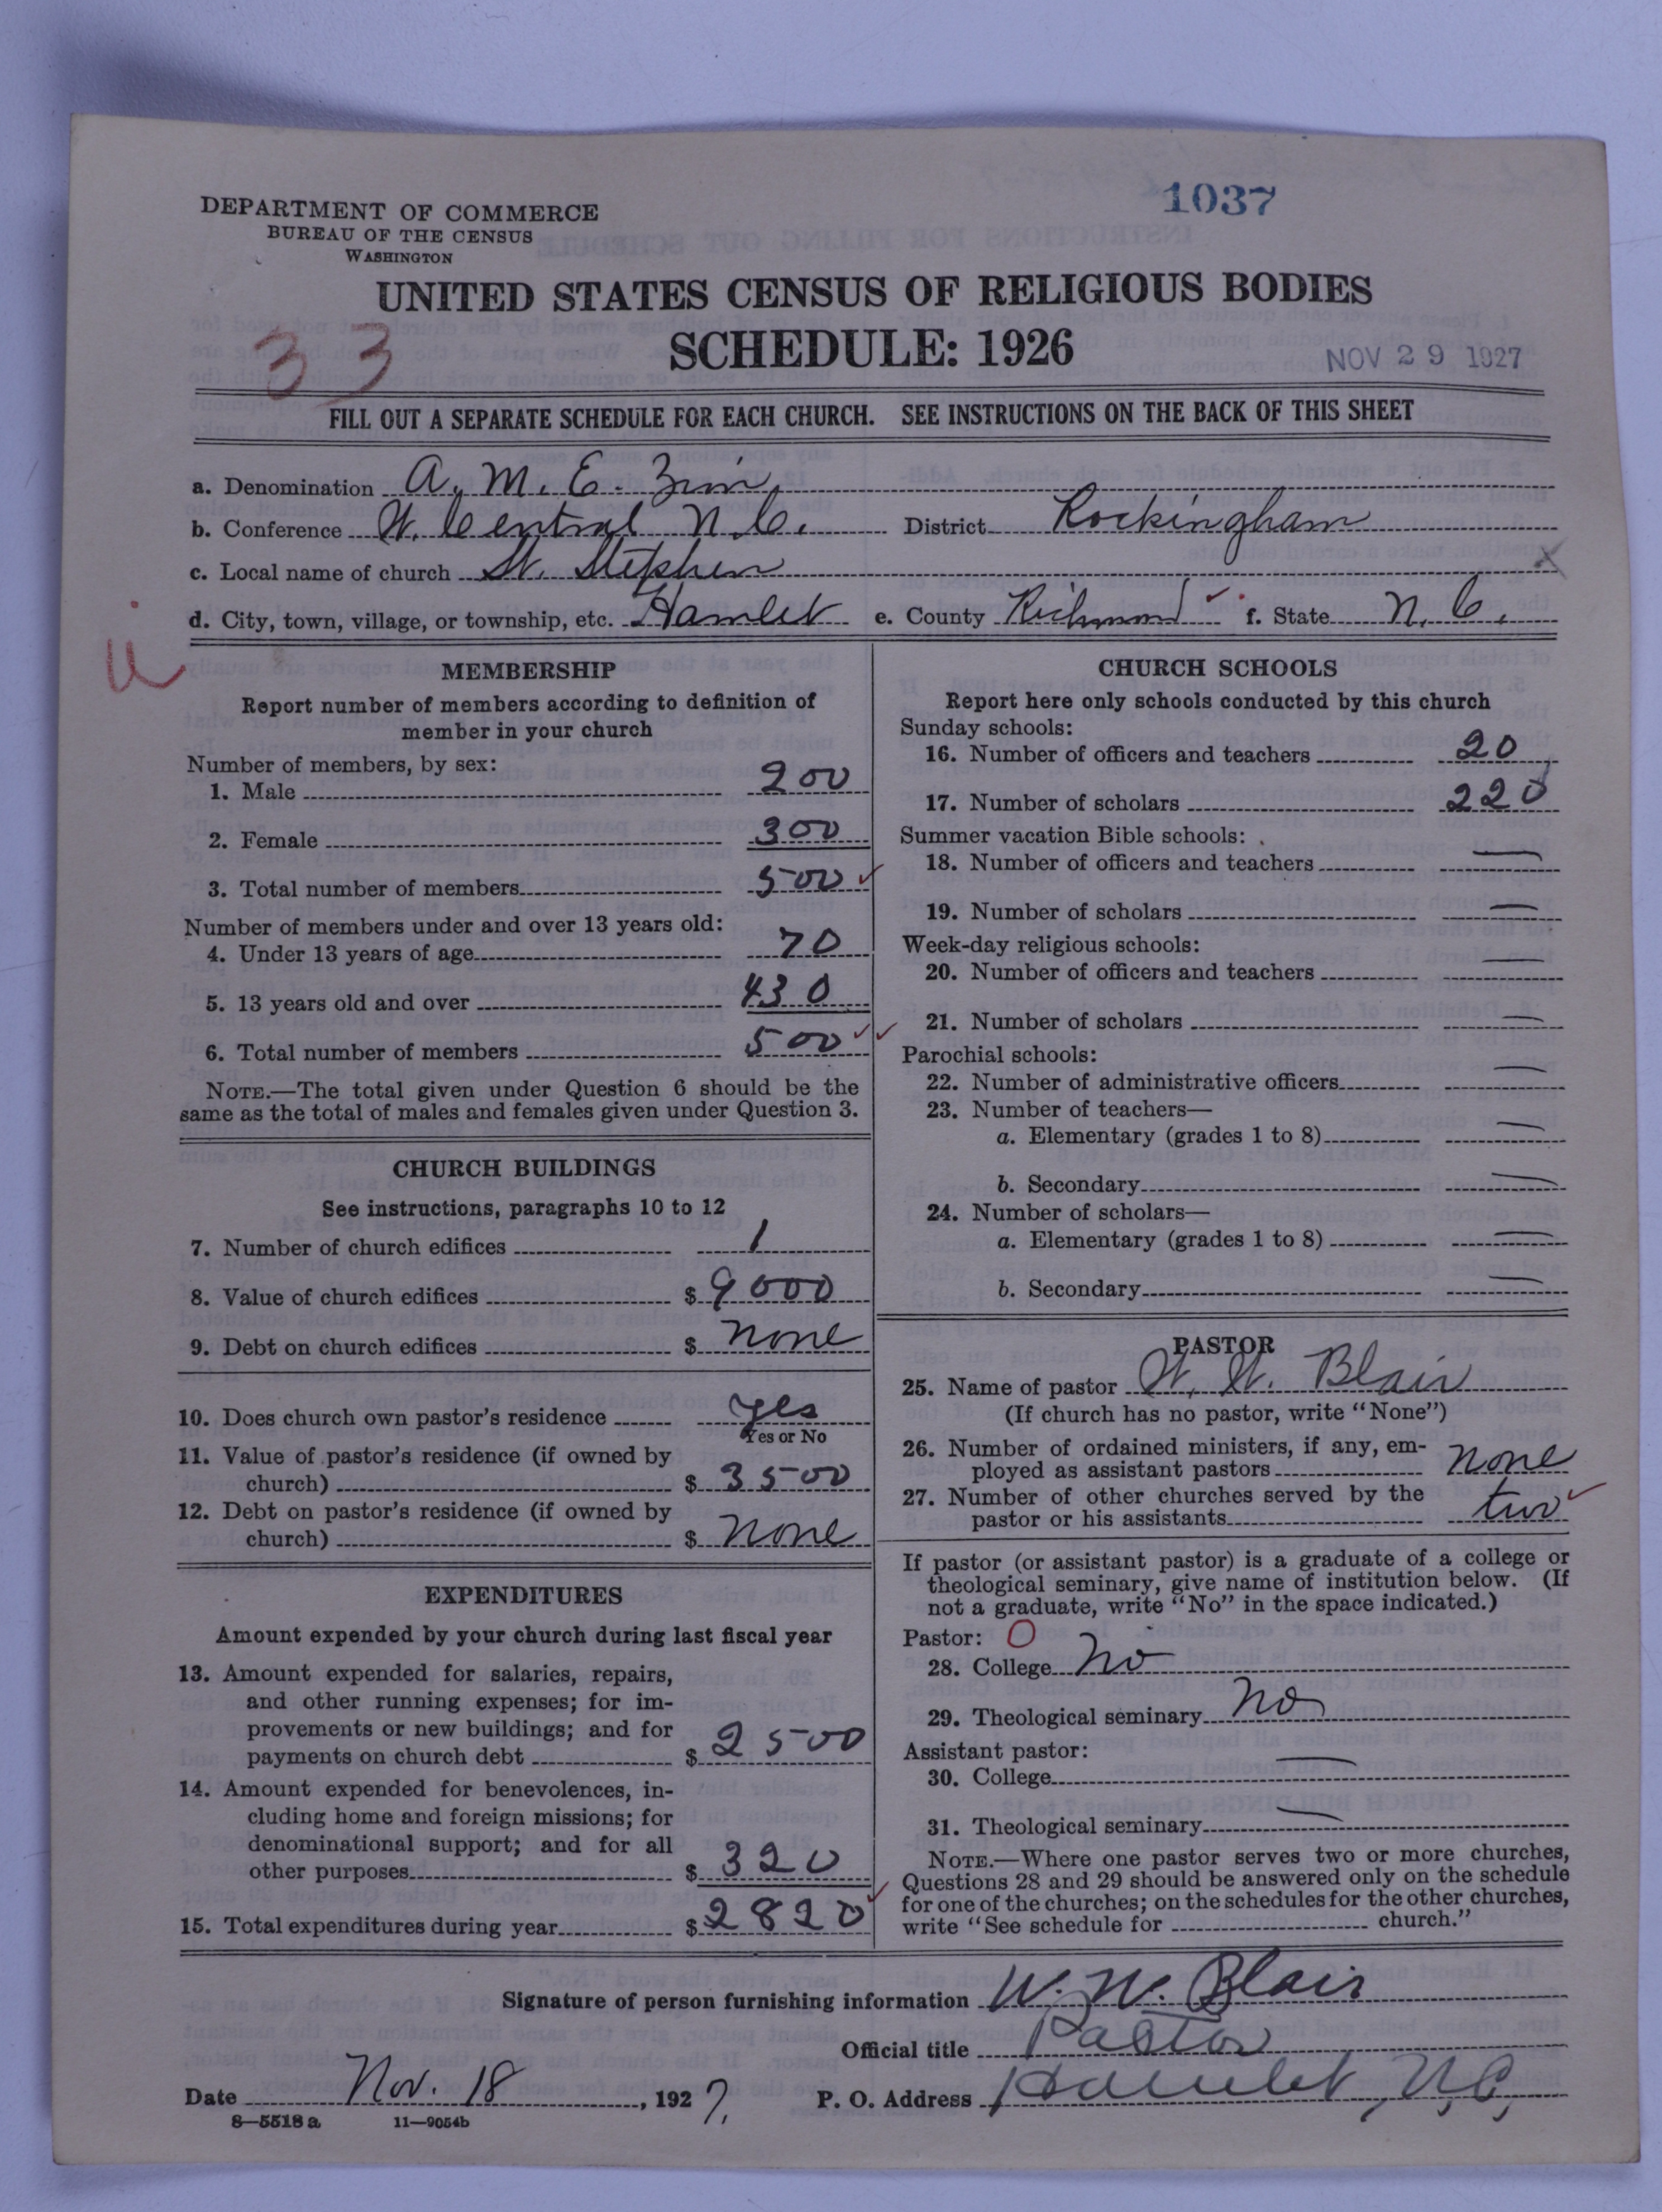 1037
DEPARTMENT OF COMMERCE
BUREAU OF THE CENSUS
WASHINGTON
UNITED STATES CENSUS OF RELIGIOUS BODIES
SCHEDULE: 1926
33
NOV 29 1927
FILL OUT A SEPARATE SCHEDULE FOR EACH CHURCH. SEE INSTRUCTIONS ON THE BACK OF THIS SHEET
a. Denomination A. M. E. Zion
b. Conference W. Central N. C. District Rockingham
c. Local name of church St. Stephen
d. City, town, village, or township, etc. Hamlet e. County Richmond f. State N. C.
MEMBERSHIP
Report number of members according to definition of
member in your church
Number of members, by sex:
1. Male 200
2. Female 300
3. Total number of members 500
Number of members under and over 13 years old:
4. Under 13 years of age 70
5. 13 years old and over 430
6. Total number of members 500
NOTE.—The total given under Question 6 should be the
same as the total of males and females given under Question 3.
CHURCH BUILDINGS
See instructions, paragraphs 10 to 12
7. Number of church edifices 1
8. Value of church edifices $ 9000
9. Debt on church edifices $ none
10. Does church own pastor's residence yes
Yes or No
11. Value of pastor's residence (if owned by
church) $ 3500
12. Debt on pastor's residence (if owned by
church) $ none
EXPENDITURES
Amount expended by your church during last fiscal year
13. Amount expended for salaries, repairs,
and other running expenses; for im-
provements or new buildings; and for
payments on church debt $ 2500
14. Amount expended for benevolences, in-
cluding home and foreign missions; for
denominational support; and for all
other purposes $ 320
15. Total expenditures during year $ 2820
CHURCH SCHOOLS
Report here only schools conducted by this church
Sunday schools:
16. Number of officers and teachers 20
17. Number of scholars 220
Summer vacation Bible schools:
18. Number of officers and teachers —
19. Number of scholars —
Week-day religious schools:
20. Number of officers and teachers —
21. Number of scholars —
Parochial schools:
22. Number of administrative officers —
23. Number of teachers—
a. Elementary (grades 1 to 8) —
b. Secondary —
24. Number of scholars—
a. Elementary (grades 1 to 8) —
b. Secondary —
PASTOR
25. Name of pastor W. W. Blair
(If church has no pastor, write "None")
26. Number of ordained ministers, if any, em-
ployed as assistant pastors none
27. Number of other churches served by the
pastor or his assistants two
If pastor (or assistant pastor) is a graduate of a college or
theological seminary, give name of institution below. (If
not a graduate, write "No" in the space indicated.)
Pastor: O
28. College No
29. Theological seminary No
Assistant pastor:
30. College —
31. Theological seminary —
NOTE.—Where one pastor serves two or more churches,
Questions 28 and 29 should be answered only on the schedule
for one of the churches; on the schedules for the other churches,
write "See schedule for church."
Signature of person furnishing information W. W. Blair
Official title Pastor
Date Nov. 18, 1927. P. O. Address Hamlet, N.C,
8—5518 a 11—9054b